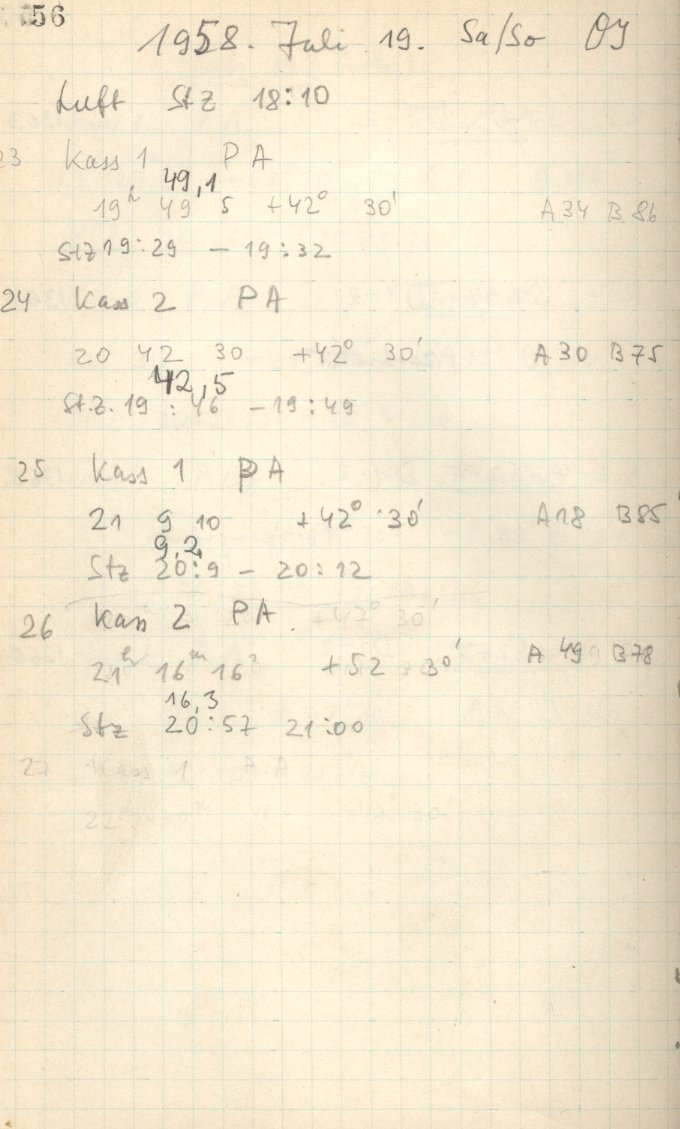 56
1958. Juli 19. Sa/So
Luft Stz 18:10
23 Kass 1 PA
49,1
19h 49 5 +42° 30' A34 B86
Stz 19:29 – 19:32
24 Kass 2 PA
20 42 30 +42° 30' A30 B75
42,5
St.Z. 19:46 – 19:49
25 Kass 1 PA
21 9 10 +42° 30' A18 B85
9,2
Stz 20:9 – 20:12
26 Kass 2 PA +47° 30'
21h 16m 16s +52 30' A 49 B78
16,3
Stz 20:57 21:00
27 Kass 1 PA
22